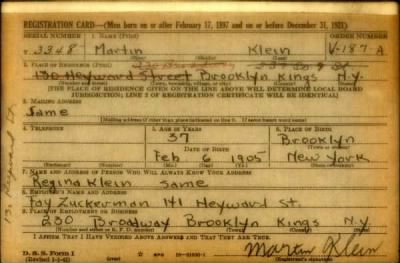 REGISTRATION CARD—(Men born on or after February 17, 1897 and on or before December 31, 1921)
SERIAL NUMBER 1. NAME (Print) ORDER NUMBER
T 3348 Martin Klein V-187-A
(First) (Middle) (Last)
2. PLACE OF RESIDENCE (Print)
130 Heyward Street Brooklyn Kings N.Y.
(Number and street) (Town, township, village, or city) (County) (State)
[THE PLACE OF RESIDENCE GIVEN ON THE LINE ABOVE WILL DETERMINE LOCAL BOARD
JURISDICTION; LINE 2 OF REGISTRATION CERTIFICATE WILL BE IDENTICAL]
3. MAILING ADDRESS
Same
[Mailing address if other than place indicated on line 2. If same insert word same]
4. TELEPHONE 5. AGE IN YEARS 6. PLACE OF BIRTH
37 Brooklyn
DATE OF BIRTH (Town or county)
Feb 6 1905 New York
(Exchange) (Number) (Mo.) (Day) (Yr.) (State or country)
7. NAME AND ADDRESS OF PERSON WHO WILL ALWAYS KNOW YOUR ADDRESS
Regina Klein same
8. EMPLOYER'S NAME AND ADDRESS
Fay Zuckerman 141 Heyward St.
9. PLACE OF EMPLOYMENT OR BUSINESS
250 Broadway Brooklyn Kings N.Y.
(Number and street or R. F. D. number) (Town) (County) (State)
I AFFIRM THAT I HAVE VERIFIED ABOVE ANSWERS AND THAT THEY ARE TRUE.
D. S. S. Form 1
(Revised 1-1-42) Martin Klein